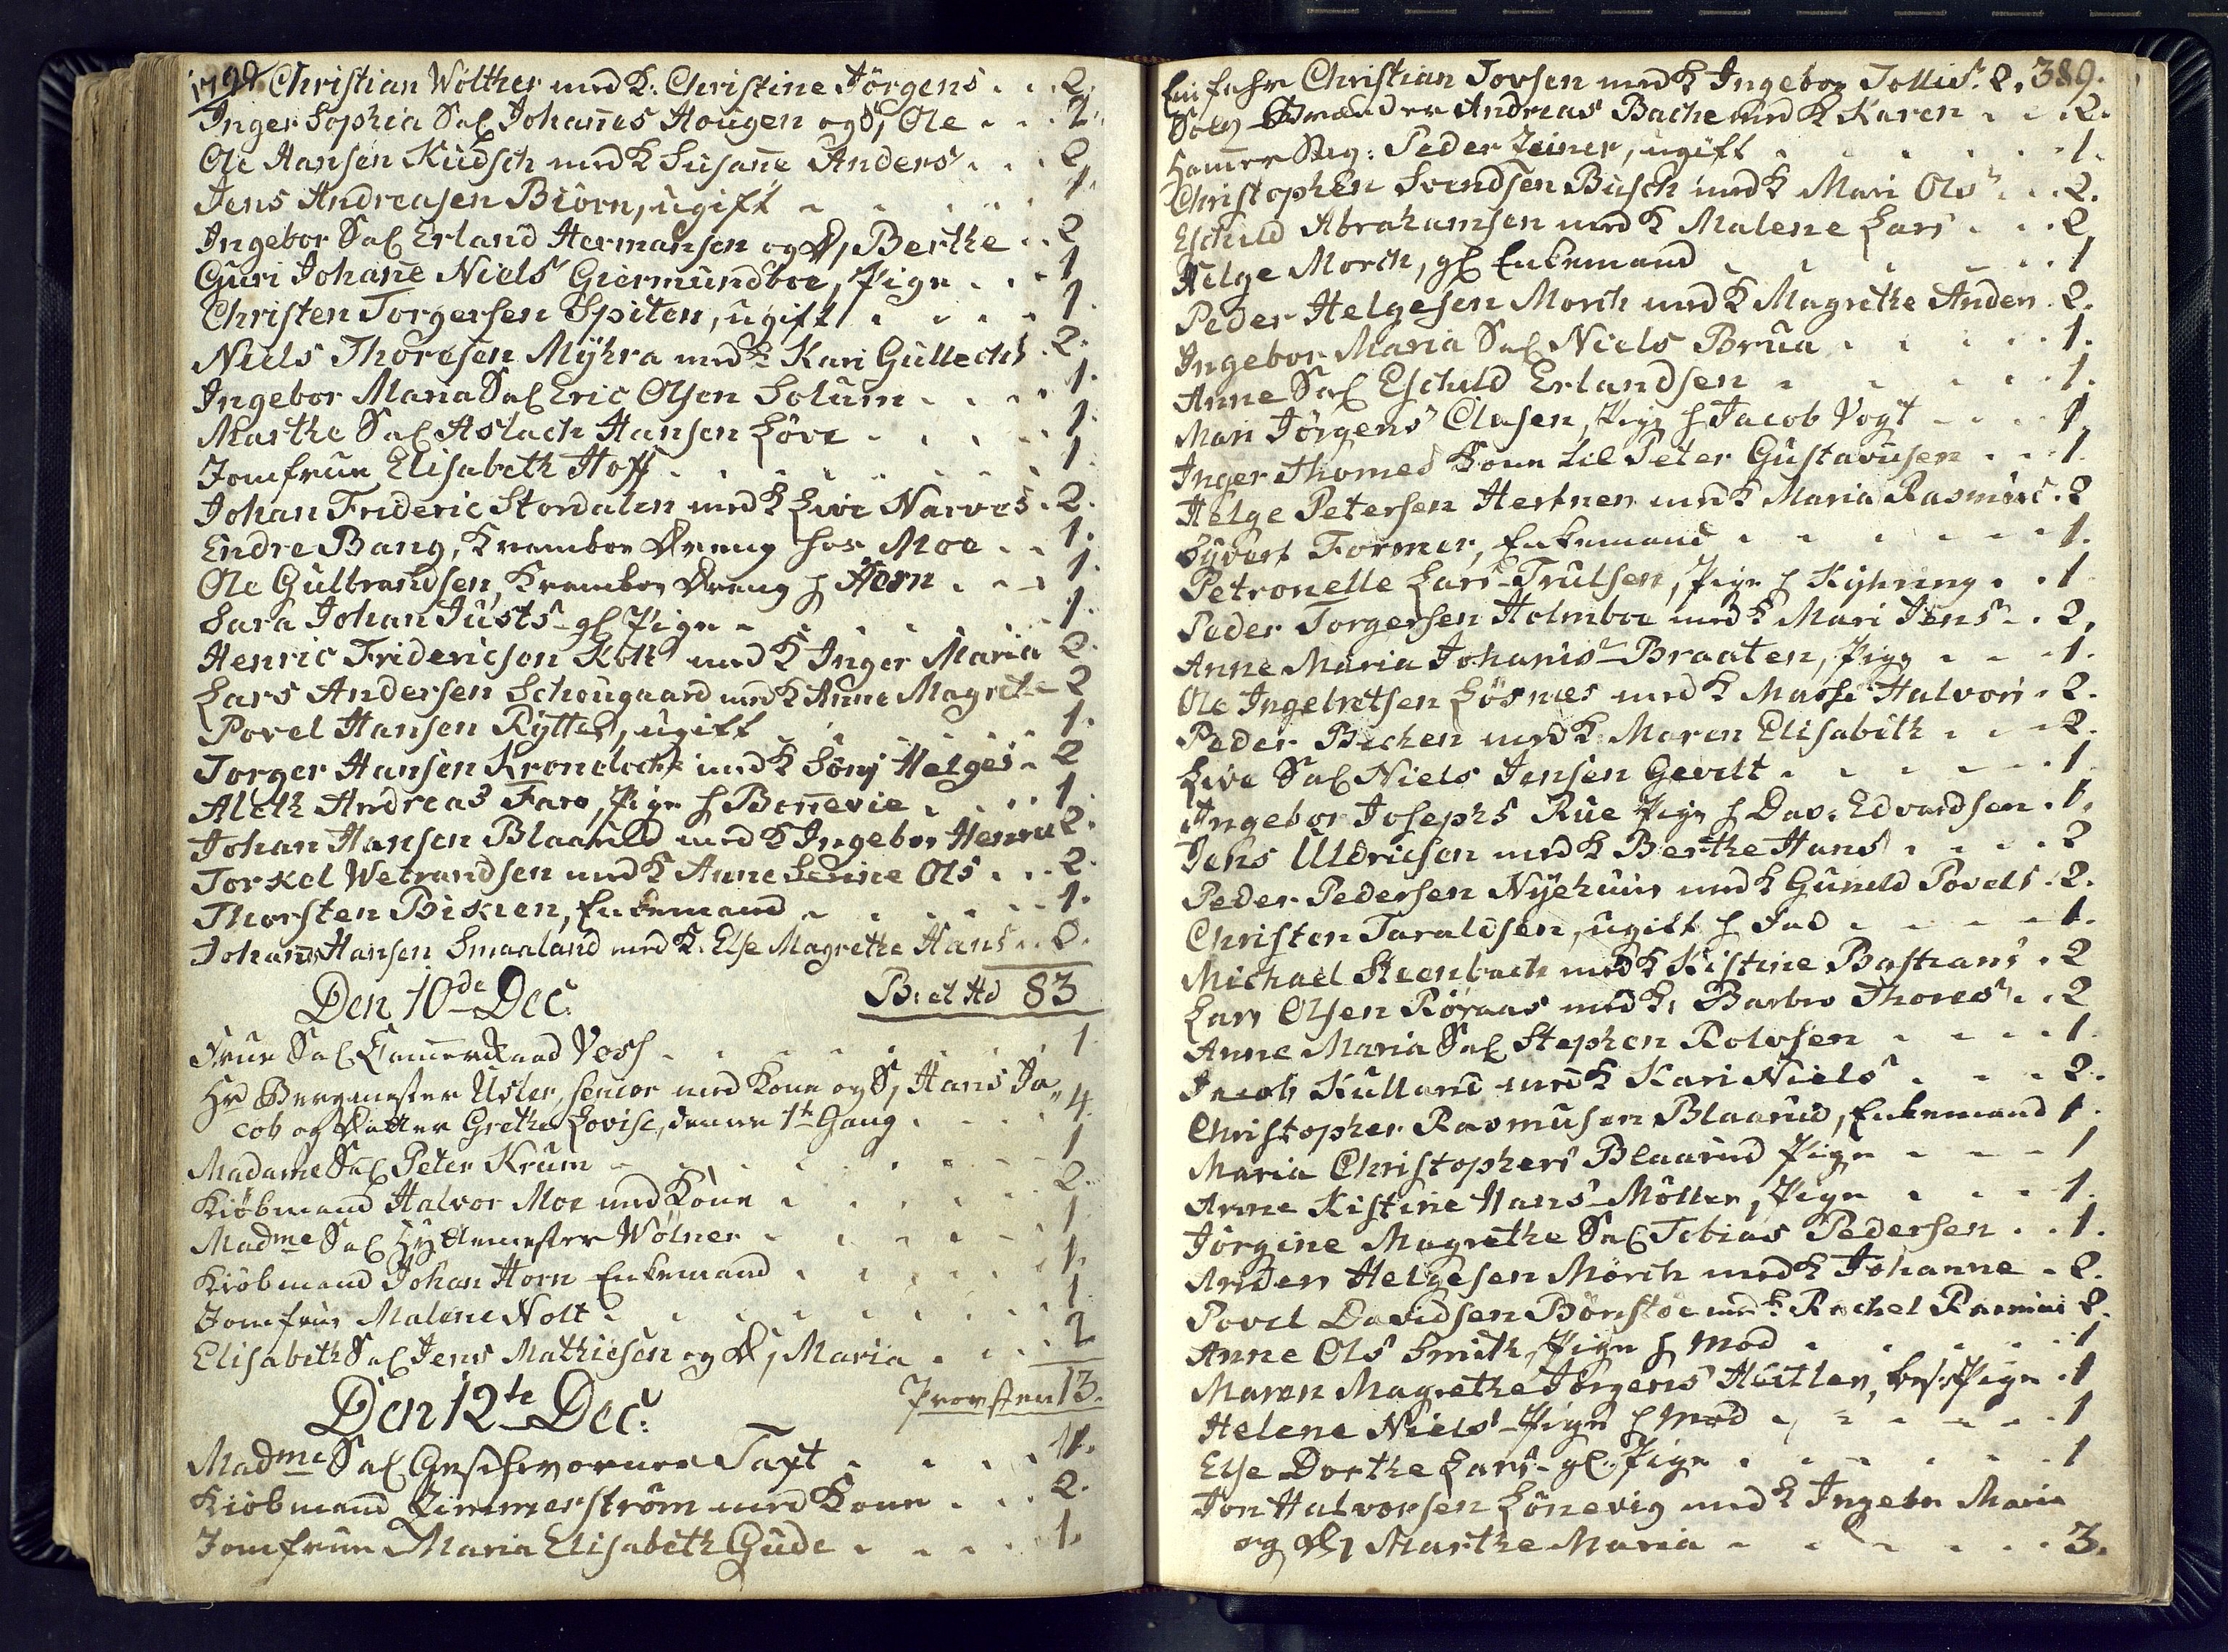 1799. Christian Wölther med K: Christine Jörgens . . . 2.
Inger Sophia Sal Johanes Hougen og S, Ole . . . 2.
Ole Hansen Kudsch med K Susane Anders . . . 2
Jens Andreasen Biörn, ugift . . . 1.
Ingebor Sal Erland Hermansen og D, Berthe . . 2
Guri Johane Niels Giermundboe, Pige . . . 1
Christen Torgersen Spiten, ugift . . . 1.
Niels Thoresen Mÿhra med K Kari Gullechs . 2.
Ingebor Maria Sal Eric Olsen Solum . . . 1.
Marthe Sal Aslach Hansen Löve . . . 1.
Jomfrue Elisabeth Hoff . . . 1.
Johan Frideric Stordalen med K Live Narves . 2.
Endre Bang, Kramboe Dreng hos Moe . . 1.
Ole Gulbrandsen, Kramboe Dreng h Horn . . . 1.
Sara Johan Justs gl Pige . . . 1.
Henric Fridericsen Kolt med K Inger Maria 2.
Lars Andersen Schougaard med K Anne Magrete 2
Povel Hansen Rÿtter, ugift . . . 1.
Torger Hansen Kronelock med K Sönj Helges . 2
Aleth Andreas Faro, Pige h Bonevie . . . 1.
Johan Hansen Blaarud med K Ingebor Henric 2.
Torkel Wetrandsen med K Anne Senne Ols . . . 2
Thorsten Biskien, Enkemand . . . 1.
Johans Hansen Smaaland med K. Else Magrethe Hans . . 2.
Den 10de Dec. B: et Hd 83
Frue Sal CammerRaad Vosh . . . 1
Hr Bergmester Usler, senior med Kone og S, Hans Ja„
cob og Datter Grethe Lovise, denne 1te Gang . . . 4.
Madame Sal Peter Krum . . . 1
Kiöbmand Halvor Moe med Kone . . . 2.
Madme Sal Hyttemester Wölner . . . 1
Kiöbmand Johan Horn Enkemand . . . 1.
Jomfrue Malene Nolt . . . 1
Elisabeth Sal Jens Mathiesen og D, Maria . . . 2
Den 12te Dec: Provsten 13.
Madme Sal Geschworner Taxt . . . 1.
Kiöbmand Zimmerström med Kone . . . 2.
Jomfrue Maria Elisabeth Gude . . . 1.
Christian Torsen med K Ingebor Tollis. 2. 389.
Sölv Brænder Andreas Bache med K Karen . . . 2.
Hamer Peder Zeiner, ugift . . . 1.
Christophen Svendsen Busch med K Mari Ols . . . 2.
Eschild Abrahamsen med K Malene Lars . . . 2
Helge Morch, gl Enkemand . . . 1
Peder Helgesen Morch med K Magrethe Anders . 2.
Ingebor Maria Sal Niels Brua . . . 1.
Anne Sal Eschild Erlandsen . . . 1.
Mari Jörgens Clasen, Pige h Jacob Vogt . . . 1.
Inger Thomes Kone til Peter Gustavusen . . . 1.
Helge Petersen Hertner med K Maria Rasmus . 2
Sÿvert Former, Enkemand . . . 1.
Petronelle Lars Trulsen, Pige h Kÿhning . . 1
Peder Torgersen Holmboe med K Mari Jens . . 2.
Anne Maria Johanis Braaten, Pige . . . 1.
Ole Ingebretsen Lösnæs med K Masse Halvors . 2.
Peder Bechen med K. Maren Elisabeth . . . 2.
Live Sal Niels Jensen Gevelt . . . 1
Ingebor Josephs Rue Pige h Dav. Edvardsen . 1.
Jens Uldricsen med K Berthe Hans . . . 2
Peder Pedersen Nÿehuus med K Guneld Povels . 2.
Christen Taraldsen, ugift h Fad . . . 1.
Michael Steenbach med K Kistine Bastians . 2
Lars Olsen Röraas med K. Barbro Thores . . . 2
Anne Maria Sal Stephen Rolvsen . . . 1.
Jacob Kulland med K Kari Niels . . . 2.
Christopher Rasmusen Blaarud, Enkemand 1.
Maria Christophers Blaarud Pige . . . 1
Anne Kistine Hans Möller, Pige . . . 1.
Jörgine Magrethe Sal Tobias Pedersen . . 1.
Anders Helgesen Mörch med K Johanne . 2.
Povel Davidsen Börstöe med K Rachel Rasmus 2.
Anne Ols Smith, Pige h Mod . . . 1
Maren Magrethe Jörgens Heitler, Pige . 1
Helene Niels Pige h Mod . . . 1
Else Dorthe Lars gl. Pige . . . 1
Jon Halvorsen Lönevig med K Ingebr Maria
og D, Marthe Maria . . . 3.